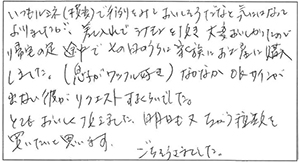 いつもルミネ(荻窪)で行列をみておいしそうだなと気にはなって
おりましたが、購入してライオンを頂き大変おいしかったので
帰宅の足 途中で その日のうちに家族にお土産に購入
しました。(息子がワッフル好き) なかなかOKサインが
出ない 彼が リクエストするくらいでした。
とてもおいしく頂きました。明日も又 ちがう種類を
買いたいと思います。
ごちそうさまでした。